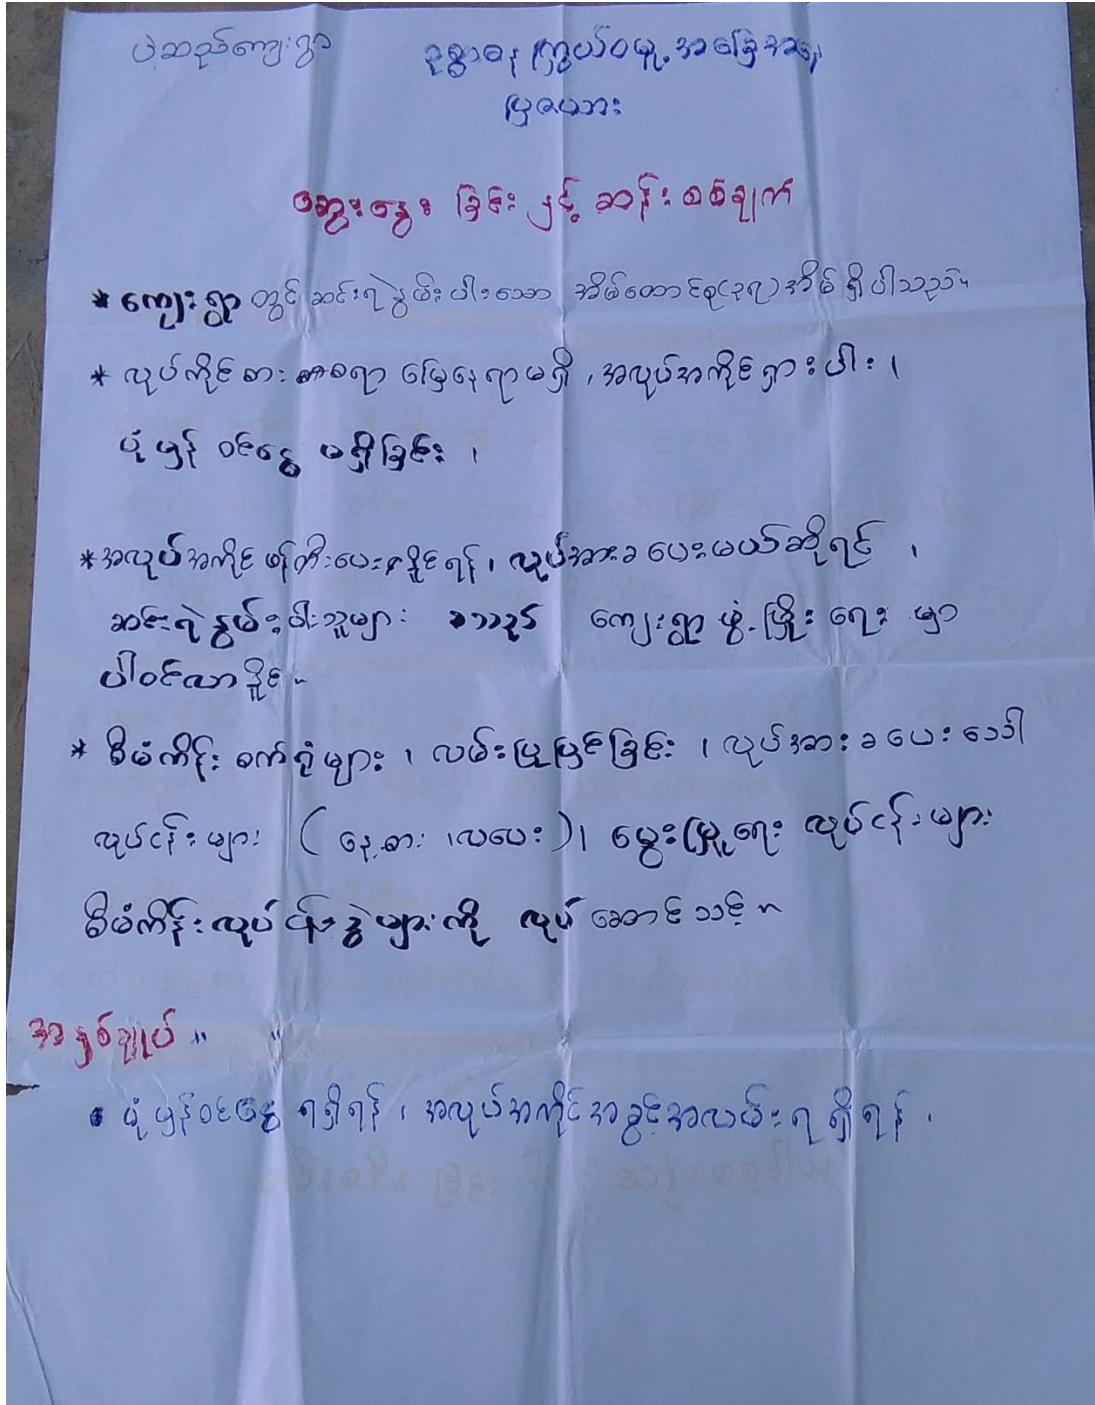 ပဲဆည်ကျေးရွာ ဥစ္စာဓန ကြွယ်ဝမှု့အခြေအနေ
ပြဇယား
ဆွေးနွေး ခြင်း နှင့် ဆန်းစစ်ချက်
* ကျေးရွာ တွင် ဆင်းရဲနွမ်းပါးသော အိမ်ထောင်စု(၃၅)အိမ် ရှိပါသည်။
* လုပ်ကိုင်စား စရာ မြေနေရာမရှိ ၊အလုပ်အကိုင်ရှားပါး ၊
ပုံမှန် ဝင်ငွေ မရှိခြင်း ၊
*အလုပ်အကိုင် ဖန်တီးပေးနိုင်ရန်၊ လုပ်အားခ ပေးမယ်ဆိုရင် ၊
ဆင်းရဲနွမ်းပါးသူများ သည် ကျေးရွာ ဖွံ့ဖြိုး ရေး မှာ
ပါဝင်လာနိုင်။
* စီမံကိန်း စက်ရုံများ ၊ လမ်းပြုပြင်ခြင်း ၊ လုပ်အားခပေးသော
လုပ်ငန်းများ (နေ့စား ၊လပေး)၊ မွေးမြူရေး လုပ်ငန်းများ
စီမံကိန်းလုပ်ငန်းခွဲများကို လုပ်ဆောင်သင့်။
အနှစ်ချုပ် "
• ပုံမှန်ဝင်ငွေ ရရှိရန် ၊ အလုပ်အကိုင်အခွင့်အလမ်းရရှိရန် ၊